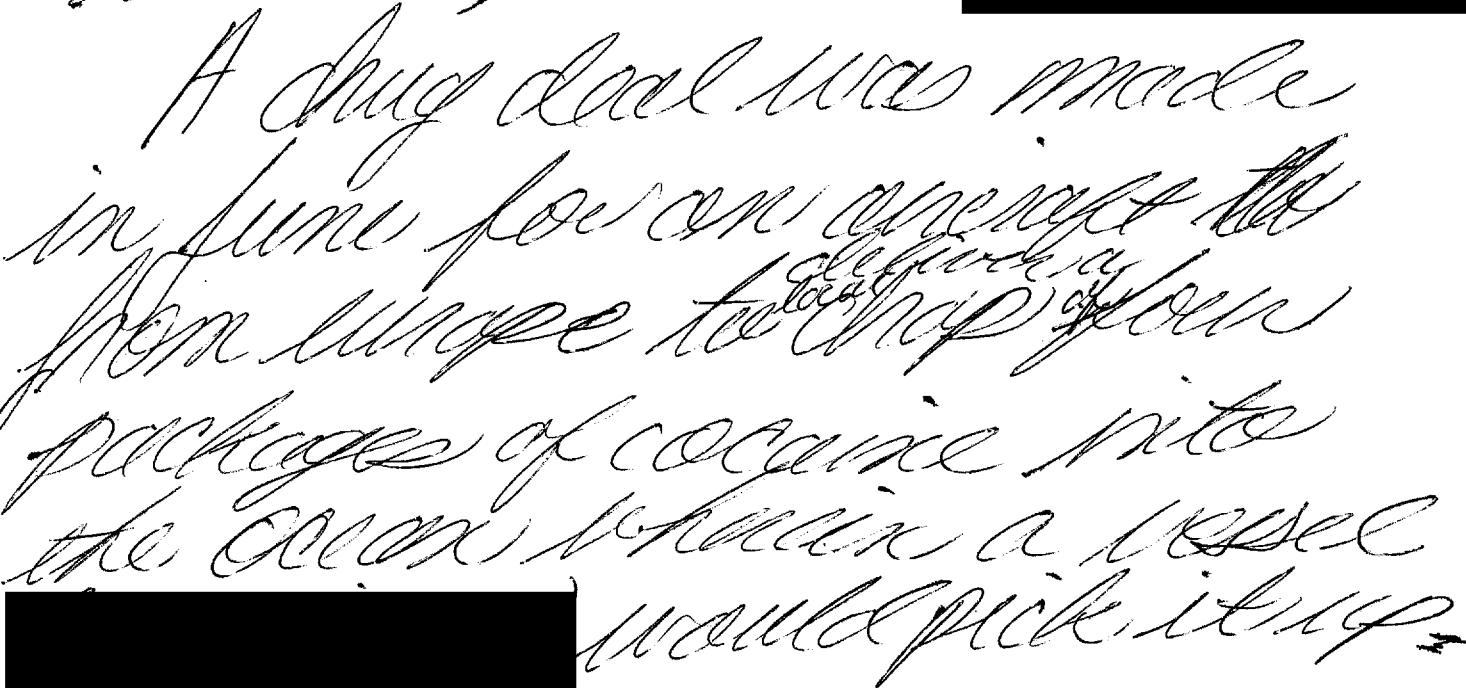 A drug deal was made
in June for an aircraft
from europe to drop
delivery
packages of cocaine into
the ocean, wherein a vessel
would pick it up.